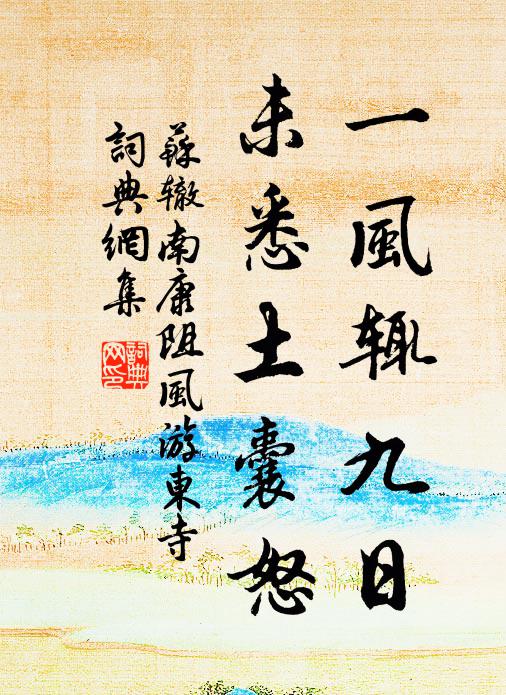 一風辄九日
未悉土囊怒
蘇辙南康阻風游東寺
詞典網集
詞典
网印